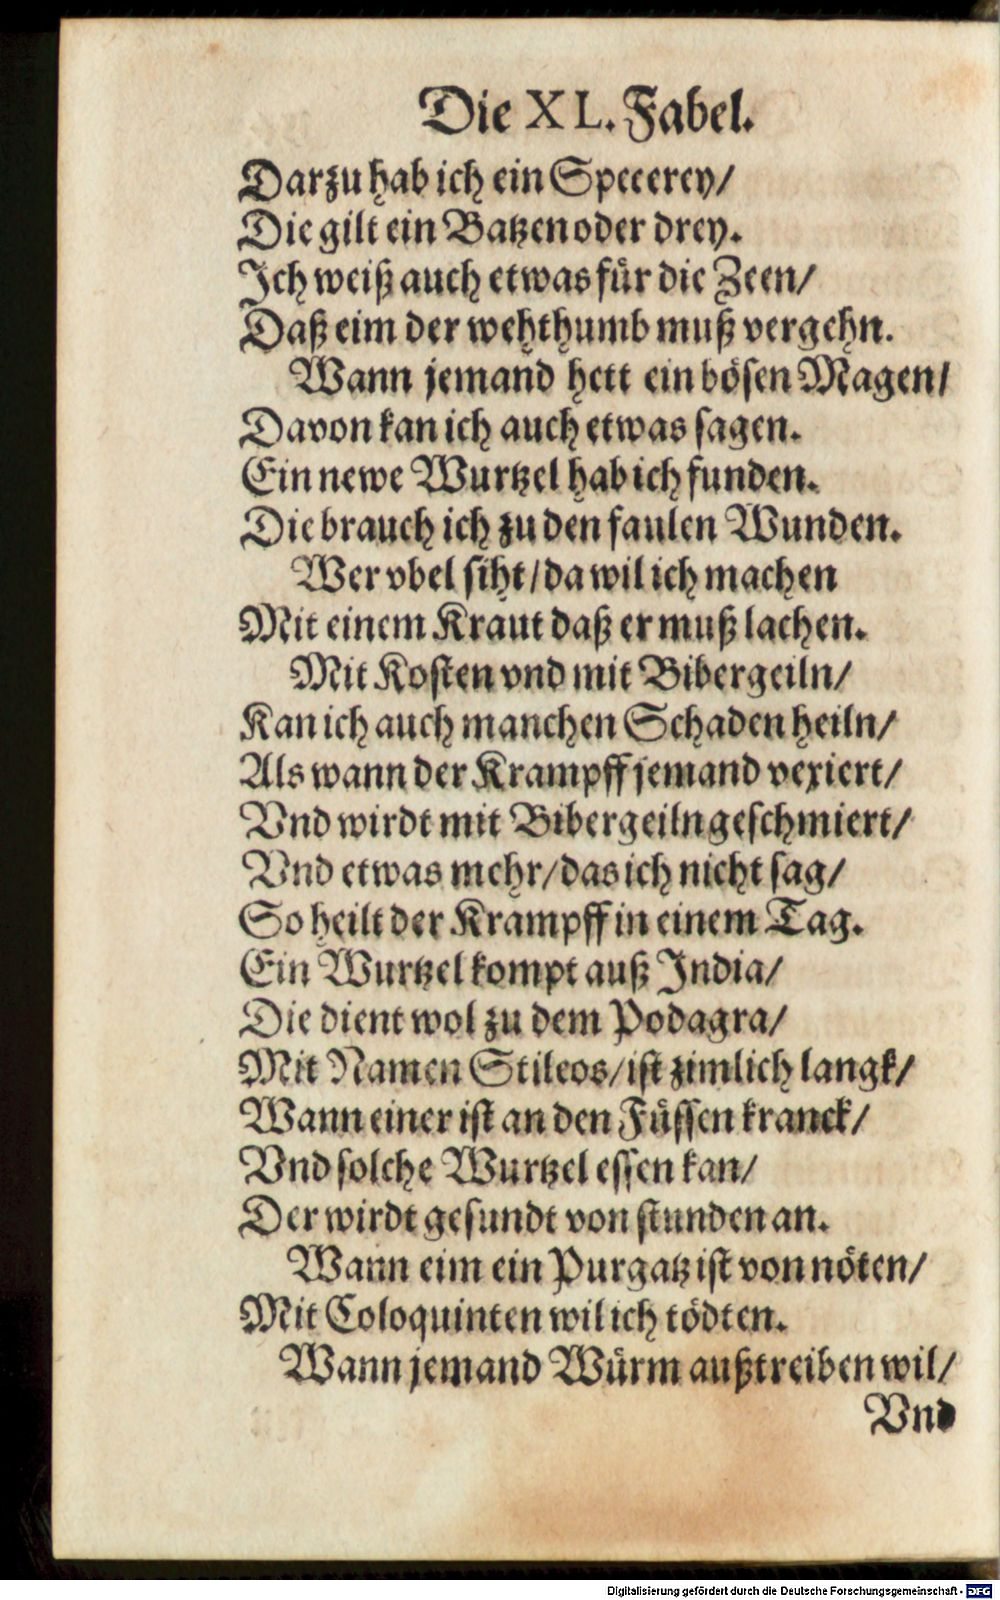 Die XL. Fabel.
Darzu hab ich ein Specerey/
Die gilt ein Batzen oder drey.
Ich weiß auch etwas für die Zeen/
Daß eim der wehthumb muß vergehn.
Wann jemand hett ein bösen Magen/
Davon kan ich auch etwas sagen.
Ein newe Wurtzel hab ich funden.
Die brauch ich zu den faulen Wunden.
Wer vbel siht/ da wil ich machen
Mit einem Kraut daß er muß lachen.
Mit Kosten vnd mit Bibergeiln/
Kan ich auch manchen Schaden heiln/
Als wann der Krampff jemand vexiert/
Vnd wirdt mit Bibergeiln geschmiert/
Vnd etwas mehr/ das ich nicht sag/
So heilt der Krampff in einem Tag.
Ein Wurtzel kompt auß India/
Die dient wol zu dem Podagra/
Mit Namen Stileos/ ist zimlich langk/
Wann einer ist an den Füssen kranck/
Vnd solche Wurtzel essen kan/
Der wirdt gesundt von stunden an.
Wann eim ein Purgatz ist von nöten/
Mit Coloquinten wil ich tödten.
Wann jemand Würm außtreiben wil/
Vnd
Digitalisierung gefördert durch die Deutsche Forschungsgemeinschaft - DFG